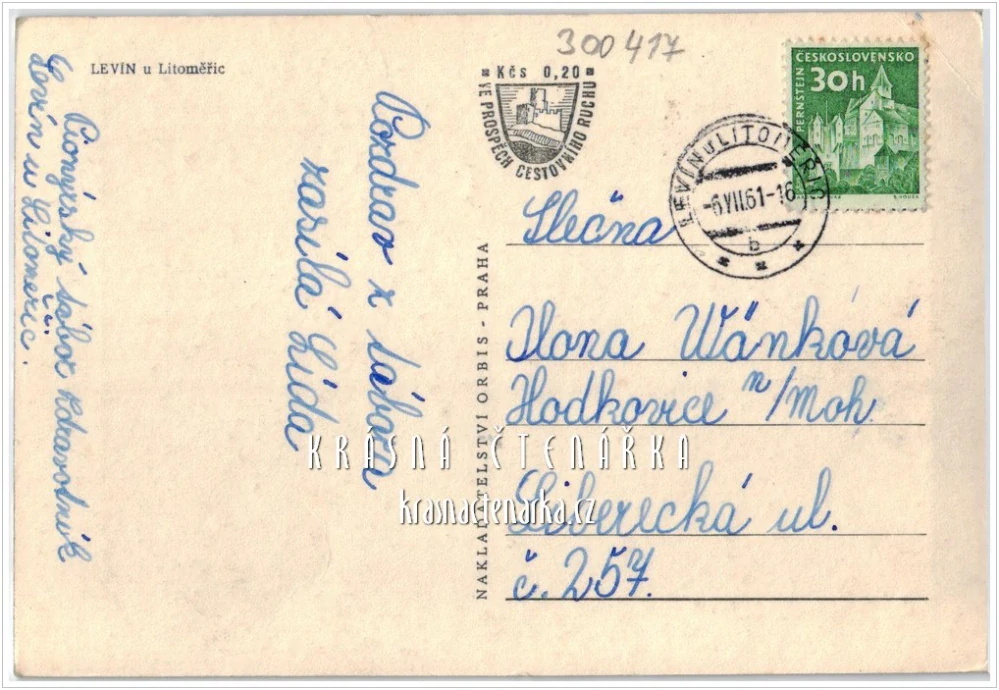 LEVÍN u Litoměřic
300417
Kčs 0,20
VE PROSPĚCH CESTOVNÍHO RUCHU
ČESKOSLOVENSKO
30h
PERNŠTEJN
LEVÍN u LITOMĚŘIC
-6.VII.61-16
b
Pozdrav z tábora
zasílá Lída
Pionýrský tábor
Levín u Litoměřic.
NAKLADATELSTVÍ ORBIS - PRAHA
Slečna
Ilona Wánková
Hodkovice n/Moh.
Liberecká ul.
č. 257.
KRÁSNÁ ČTENÁŘKA
krasnactenarka.cz